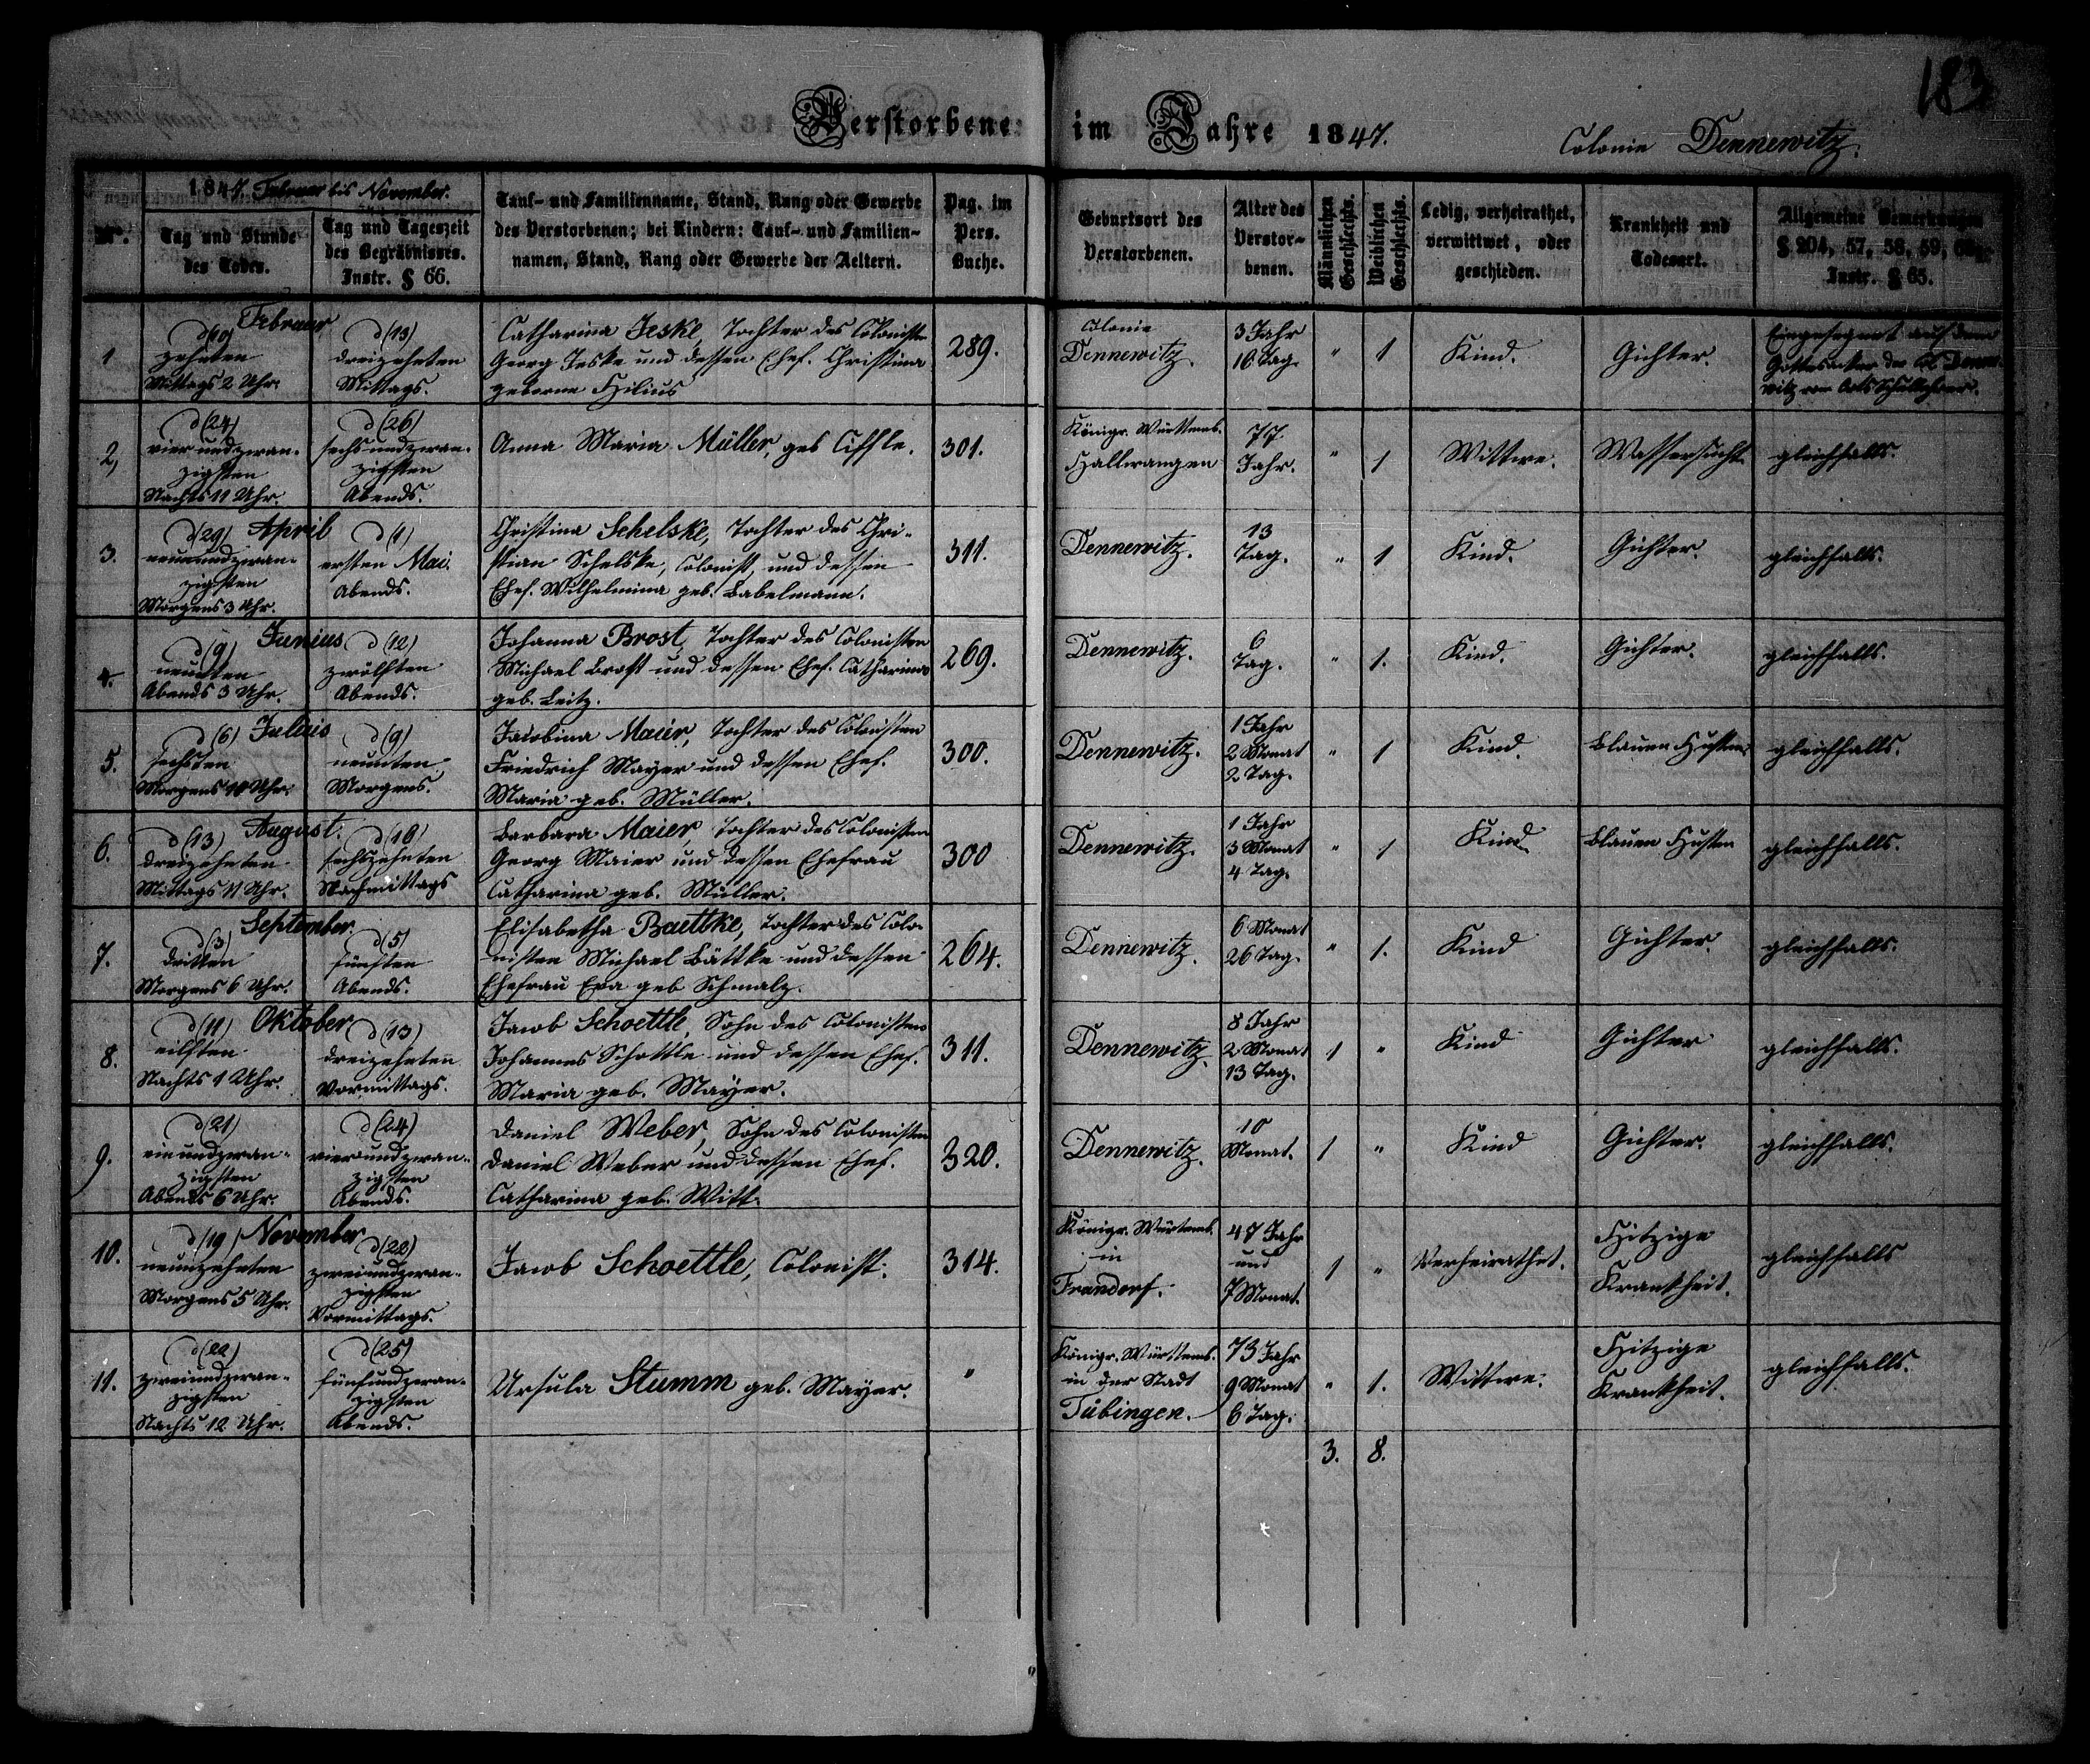 183
Verstorbene im Jahre 1847.
Colonie Dennewitz.
1847. Februar bis November.
No.
Tag und Stunde des Todes.
Tag und Tageszeit des Begräbnisses. Instr. § 66.
Tauf- und Familienname, Stand, Rang oder Gewerbe
des Verstorbenen; bei Kindern: Tauf- und Familien-
namen, Stand, Rang oder Gewerbe der Aeltern.
Pag. im Pers. Buche.
Geburtsort des Verstorbenen.
Alter des Verstor- benen.
Männlichen Geschlechts.
Weiblichen Geschlechts.
Ledig, verheirathet, verwittwet, oder geschieden.
Krankheit und Todesart.
Allgemeine Bemerkungen
§ 204, 57, 58, 59,
Instr. § 65.
1
Februar
d (10) zehnten Mittags 2 Uhr.
d (13) dreizehnten Mittags.
Catharina Jeske, Tochter des Colonisten
Georg Jeske und dessen Ehef. Christina
geborne Hilius
289.
Colonie Dennewitz.
3 Jahr 16 Tag.
" 1
Kind.
Gichter.
Eingesegnet auf dem
Gottesacker der Col. Denne-
witz vom Orts Schullehrer.
2,
d (24) vier und zwan- zigsten Nachts 11 Uhr.
d (26) sechsundzwan- zigsten Abends.
Anna Maria Müller, geb Ciffle.
301.
Königr. Württemb. Hallwangen
77. Jahr.
" 1
Wittwe.
Wassersucht
gleichfalls.
3.
April
d (29) neunundzwan- zigsten Morgens 3 Uhr.
d (1) ersten Mai. Abends.
Christina Schelske, Tochter des Chri-
stian Schelske, Colonist, und dessen
Ehef. Wilhelmina geb. Babelmann.
311.
Dennewitz.
13 Tag.
" 1
Kind.
Gichter.
gleichfalls.
4.
Junius
d (9) neunten Abends 3 Uhr.
d (12) zwölften Abends.
Johanna Brost, Tochter des Colonisten
Michael Brost und dessen Ehef. Catharina
geb. Leitz.
269.
Dennewitz.
6 Tag.
" 1.
Kind.
Gichter.
gleichfalls.
5.
Julius
d (6) sechsten Morgens 10 Uhr.
d (9) neunten Morgens.
Jacobina Maier, Tochter des Colonisten
Friedrich Mayer und dessen Ehef.
Maria geb. Müller.
300.
Dennewitz.
1 Jahr 2 Monat 2 Tag.
" 1
Kind.
Blauen Husten
gleichfalls.
6.
August.
d (13) dreizehnten Mittags 11 Uhr.
d (16) sechszehnten Nachmittags
Barbara Maier, Tochter des Colonisten
Georg Maier und dessen Ehefrau
Catharina geb. Müller.
300
Dennewitz.
1 Jahr 3 Monat 4 Tag.
" 1
Kind.
Blauen Husten
gleichfalls.
7.
September.
d (3) dritten Morgens 6 Uhr.
d (5) fünften Abends.
Elisabetha Baettke, Tochter des Colo-
nisten Michael Bättke und dessen
Ehefrau Eva geb Schmalz.
264.
Dennewitz.
6 Monat 26 Tag.
" 1.
Kind
Gichter
gleichfalls.
8.
Oktober
d (11) eilften Nachts 1 Uhr.
d (13) dreizehnten Vormittags.
Jacob Schoettle, Sohn des Colonisten
Johannes Schottle und dessen Ehef.
Maria geb. Mayer.
311.
Dennewitz.
8 Jahr 2 Monat 13 Tag.
1 "
Kind
Gichter
gleichfalls.
9.
d (21) einundzwan- zigsten Abends 6 Uhr.
d (24) vierundzwan- zigsten Abends.
Daniel Weber, Sohn des Colonisten
Daniel Weber und dessen Ehef.
Catharina geb. Witt.
320.
Dennewitz.
10 Monat.
1 "
Kind
Gichter.
gleichfalls.
10.
November
d (19) neunzehnten Morgens 5 Uhr.
d (22) zweiundzwan- zigsten Vormittags.
Jacob Schoettle, Colonist.
314.
Königr. Würtemb. in
47 Jahr und 7 Monat.
1 "
Verheirathet.
Hitzige Krankheit.
gleichfalls
11.
d (22) zweiundzwan- zigsten Nachts 12 Uhr.
d (25) fünfundzwan- zigsten Abends.
Ursula Stumm geb. Mayer.
"
Königr. Württemb. in der Stadt Tübingen.
73 Jahr 9 Monat 6 Tag.
" 1.
Wittwe.
Hitzige Krankheit.
gleichfalls.
3. 8.